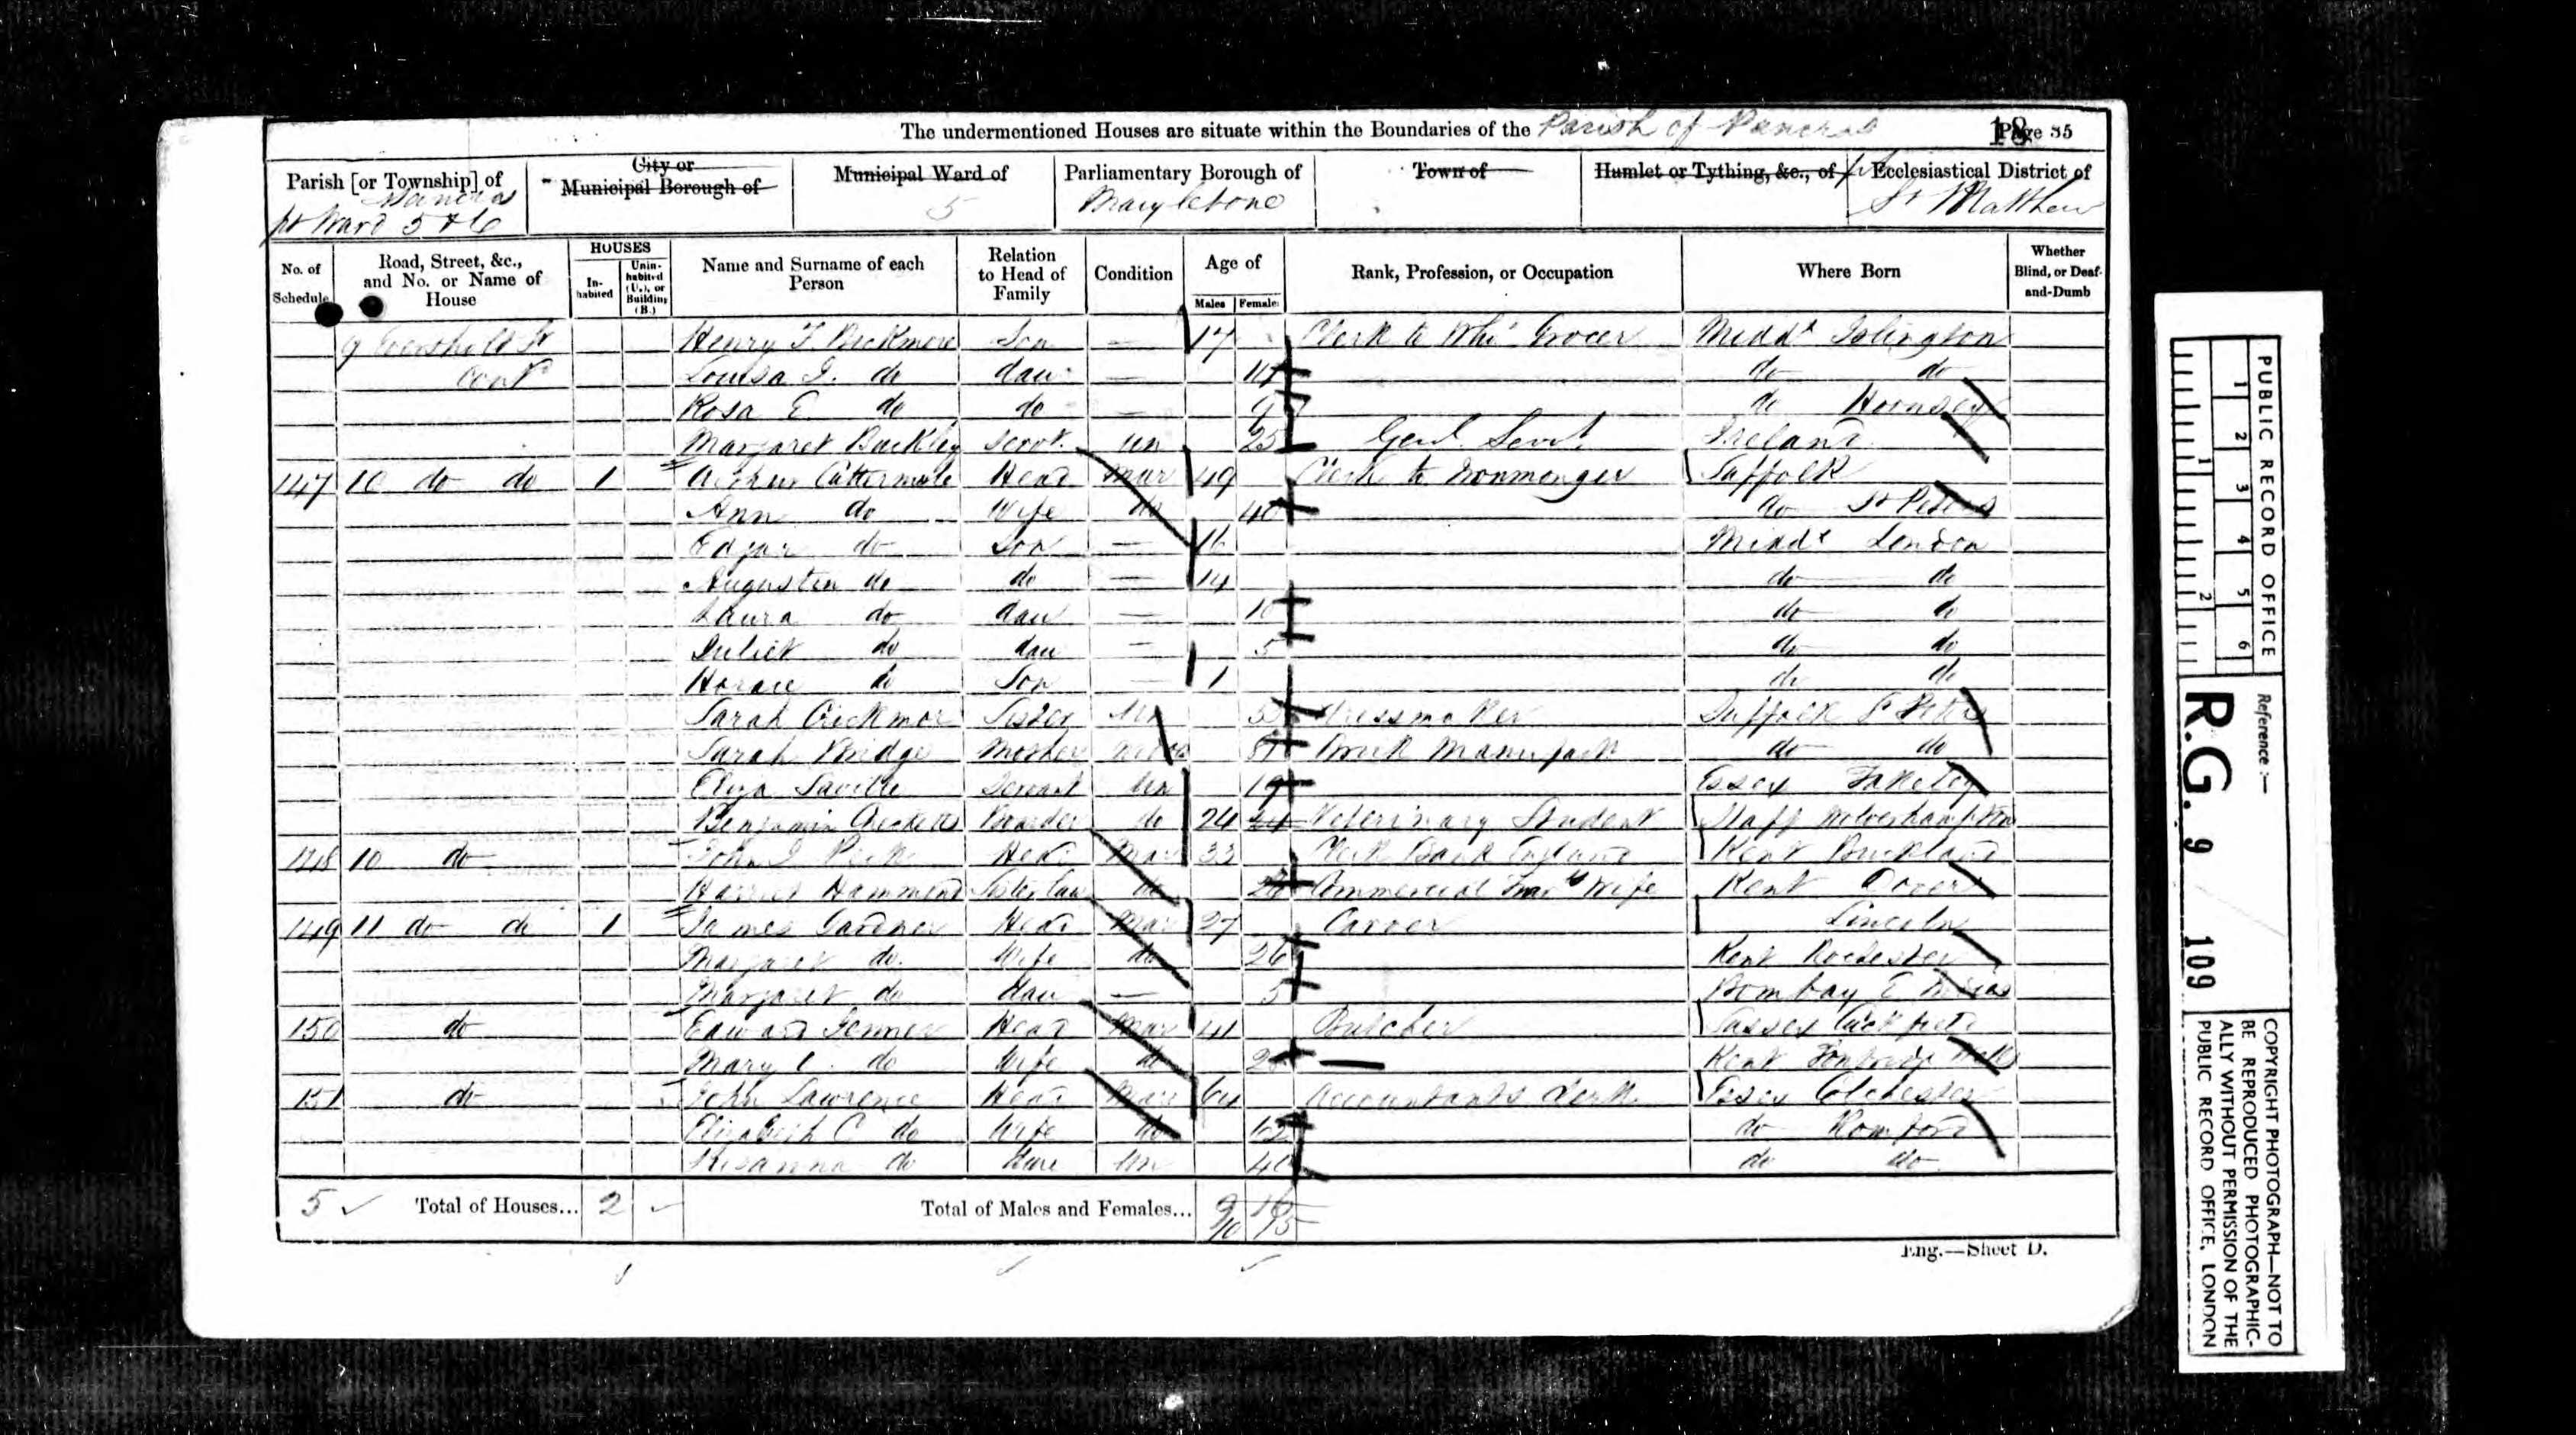 The undermentioned Houses are situate within the Boundaries of the Parish of Pancras
18 Page 35
Parish [or Township] of Pancras pt Ward 5 & 6
City or Municipal Borough of
Municipal Ward of 5
Parliamentary Borough of Marylebone
Town of
Hamlet or Tything, &c., of
Ecclesiastical District of St Matthew
No. of Schedule
Road, Street, &c., and No. or Name of House
HOUSES
In-habited
Unin-habited (U.), or Building (B.)
Name and Surname of each Person
Relation to Head of Family
Condition
Age of
Males Females
Rank, Profession, or Occupation
Where Born
Whether Blind, or Deaf-and-Dumb
9 Eversholt St Henry Bickmore Son — 17 Clerk to Grocer Middx Islington
Cont Louisa J. do dau — 14 do do
Rosa E do do — 9 do Hornsey
Margaret Buckley Servt. un 25 Genl. Servt Ireland
147 10 do do 1 Cattermole Head Mar 49 Clerk to Ironmonger Suffolk
Ann do Wife do 40 do St Peters
Edgar do Son — 16 Middx London
Augustin do do — 14 do do
Laura do dau — 10 do do
Juliet do dau — 5 do do
Horace do Son — 1 do do
Sarah Crickmor Sister Un Dressmaker Suffolk St Peters
Sarah Bridge Mother Brick Manufact do do
Eliza Saville Servant Un 19 Essex Takeley
Benjamin Boarder do 24 Veterinary Student Staff Wolverhampton
148 10 do John Head Mar 33 Clerk Bank England Kent Buckland
Harriet Hammond Sister law do Commercial Wife Kent Dover
149 11 do do 1 James Gardner Head Mar 27 Carver Lincoln
Margaret do. Wife do 26 Kent Rochester
Margaret do dau — 5 Bombay E Indias
150 do Edward Jenner Head Mar 41 Butcher Sussex Cuckfield
Mary do Wife do — Kent
151 do John Lawrence Head Mar 64 Accountants Clerk Essex Colchester
Elizabeth C do Wife do 62 do Romford
do Un 40 do do
5 Total of Houses... 2
Total of Males and Females... 9 10 16 15
Eng.—Sheet D.
PUBLIC RECORD OFFICE
1 2 3 4 5 6
1 2
Reference :—
R.G. 9 109
COPYRIGHT PHOTOGRAPH—NOT TO BE REPRODUCED PHOTOGRAPHIC-ALLY WITHOUT PERMISSION OF THE PUBLIC RECORD OFFICE, LONDON